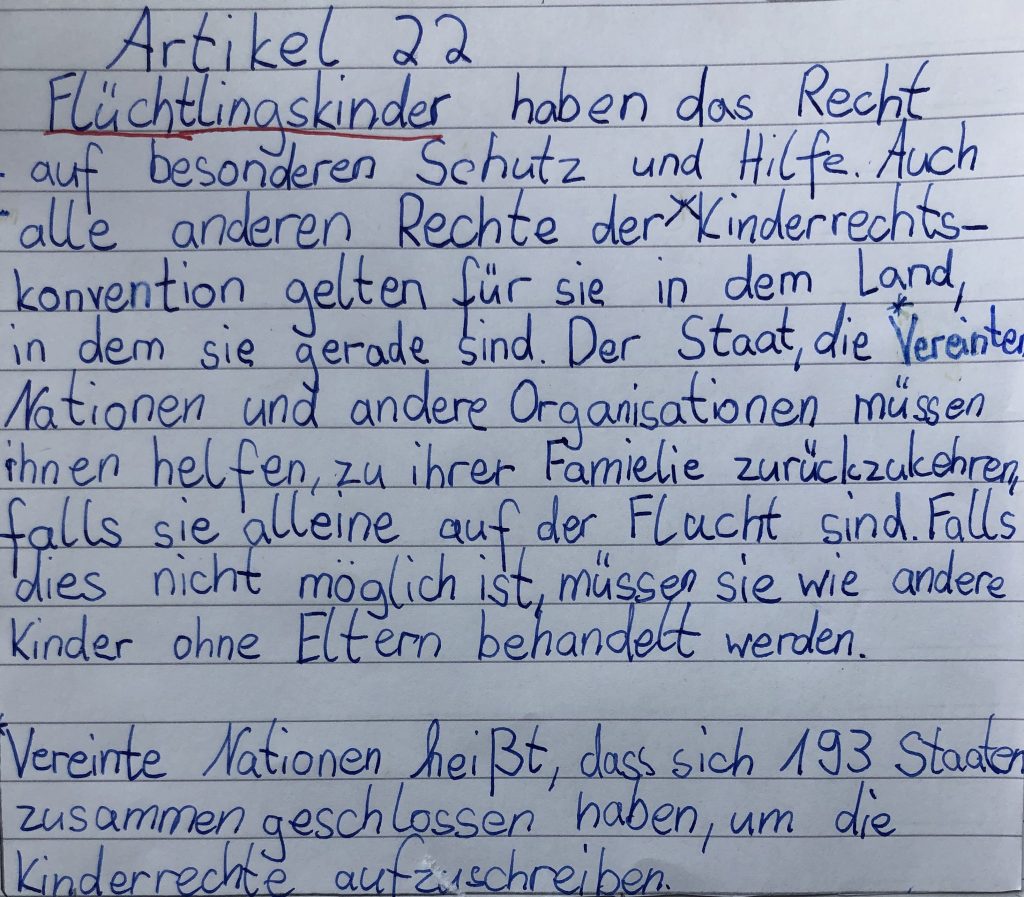 Artikel 22
Flüchtlingskinder haben das Recht
auf besonderen Schutz und Hilfe. Auch
alle anderen Rechte der *Kinderrechts-
konvention gelten für sie in dem Land,
in dem sie gerade sind. Der Staat, die *Vereinten
Nationen und andere Organisationen müssen
ihnen helfen, zu ihrer Famielie zurückzukehren,
falls sie alleine auf der Flucht sind. Falls
dies nicht möglich ist, müssen sie wie andere
Kinder ohne Eltern behandelt werden.
*Vereinte Nationen heißt, dass sich 193 Staaten
zusammen geschlossen haben, um die
Kinderrechte aufzuschreiben.